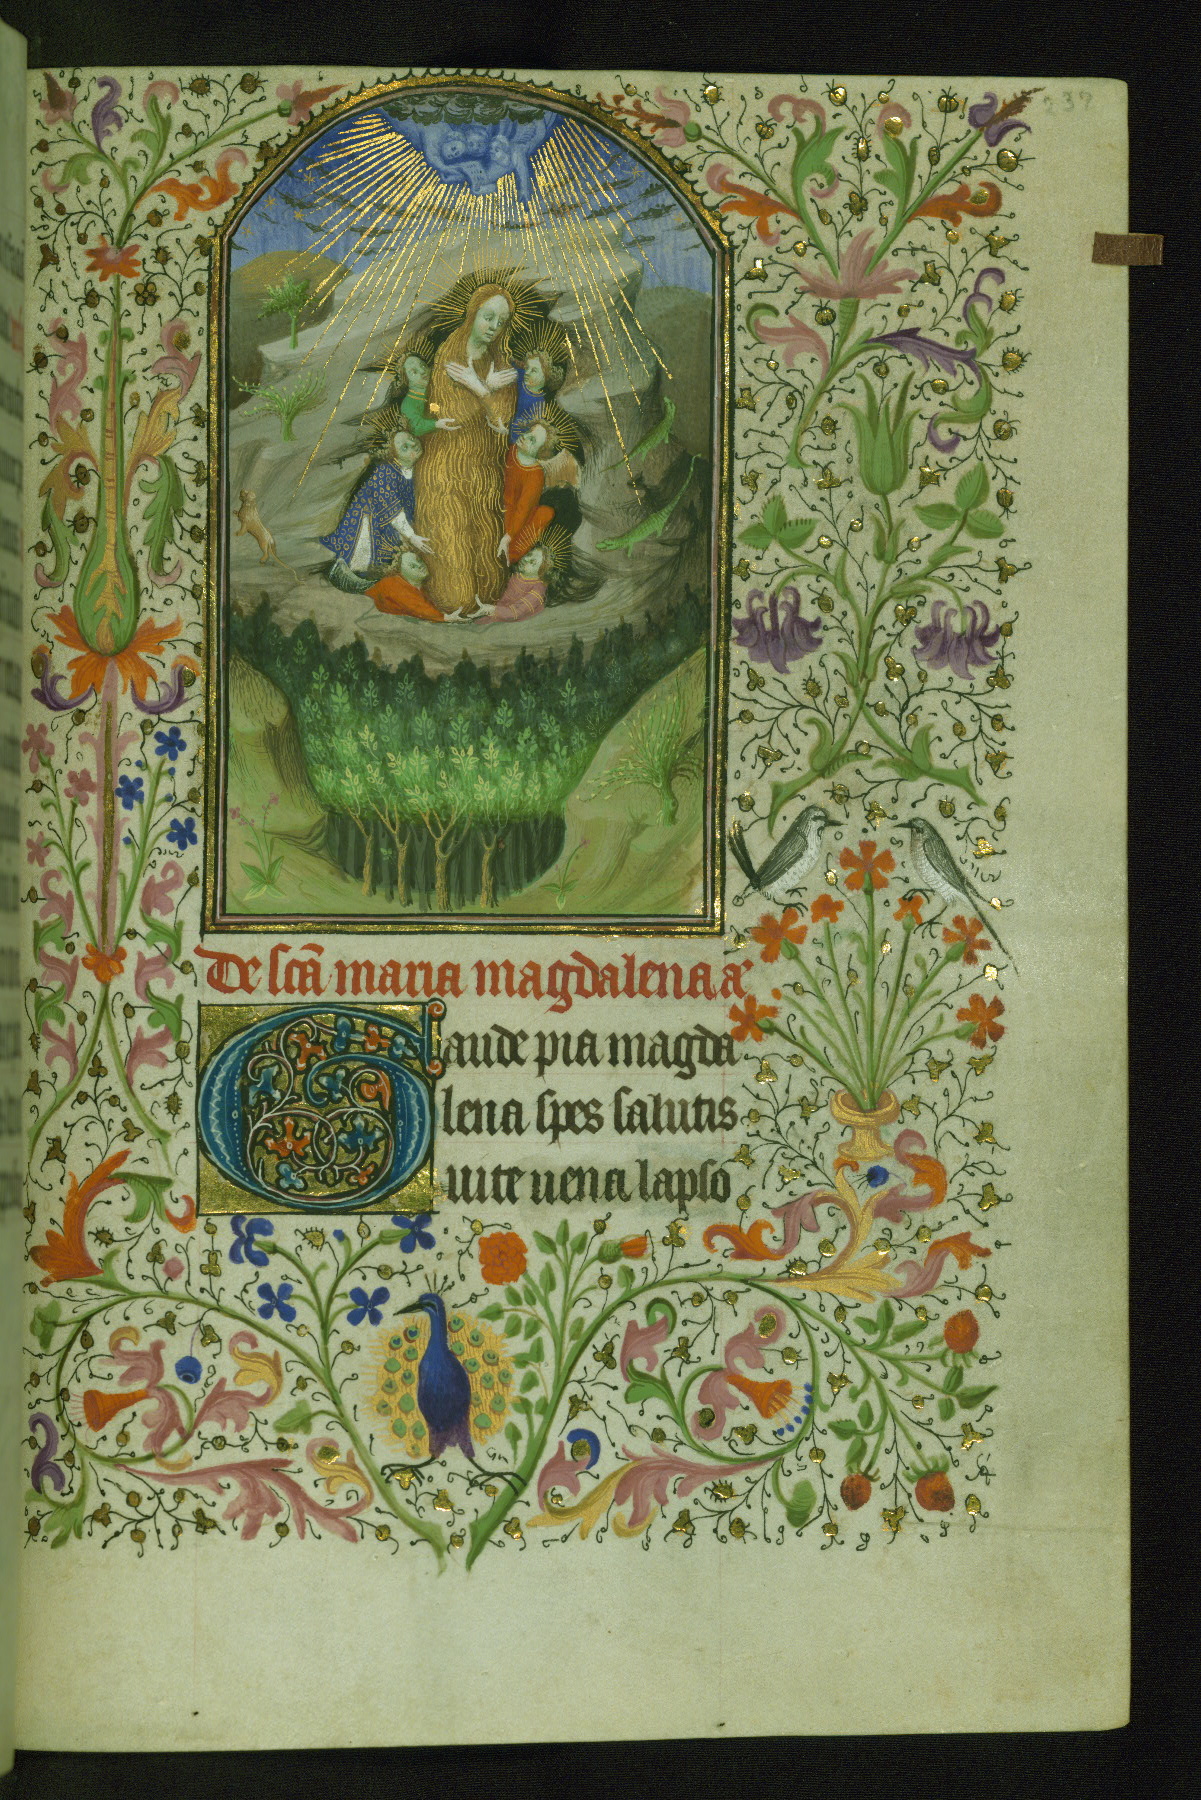 De sc̃ã maria magdalena a͞
Gaude pia magda
lena spes salutis
uite uena lapso